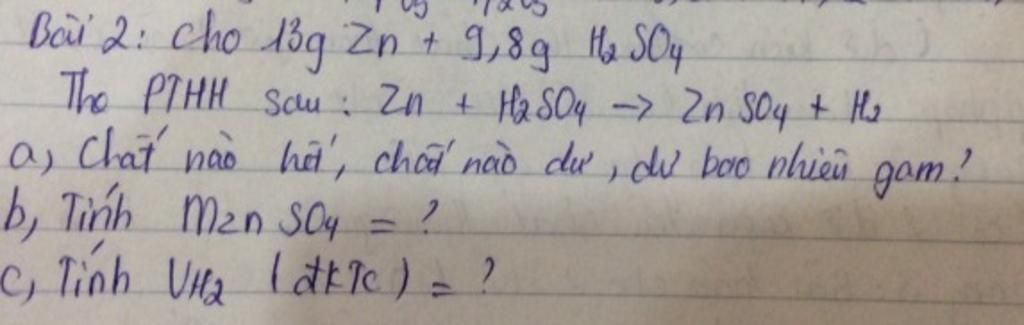 Bài 2: Cho 13g Zn + 9,8g H2SO4
Tho PTHH sau: Zn + H2SO4 → ZnSO4 + H2
a, Chất nào hết, chất nào dư, dư bao nhiêu gam?
b, Tính mZnSO4 = ?
c, Tính VH2 (đkTc) = ?